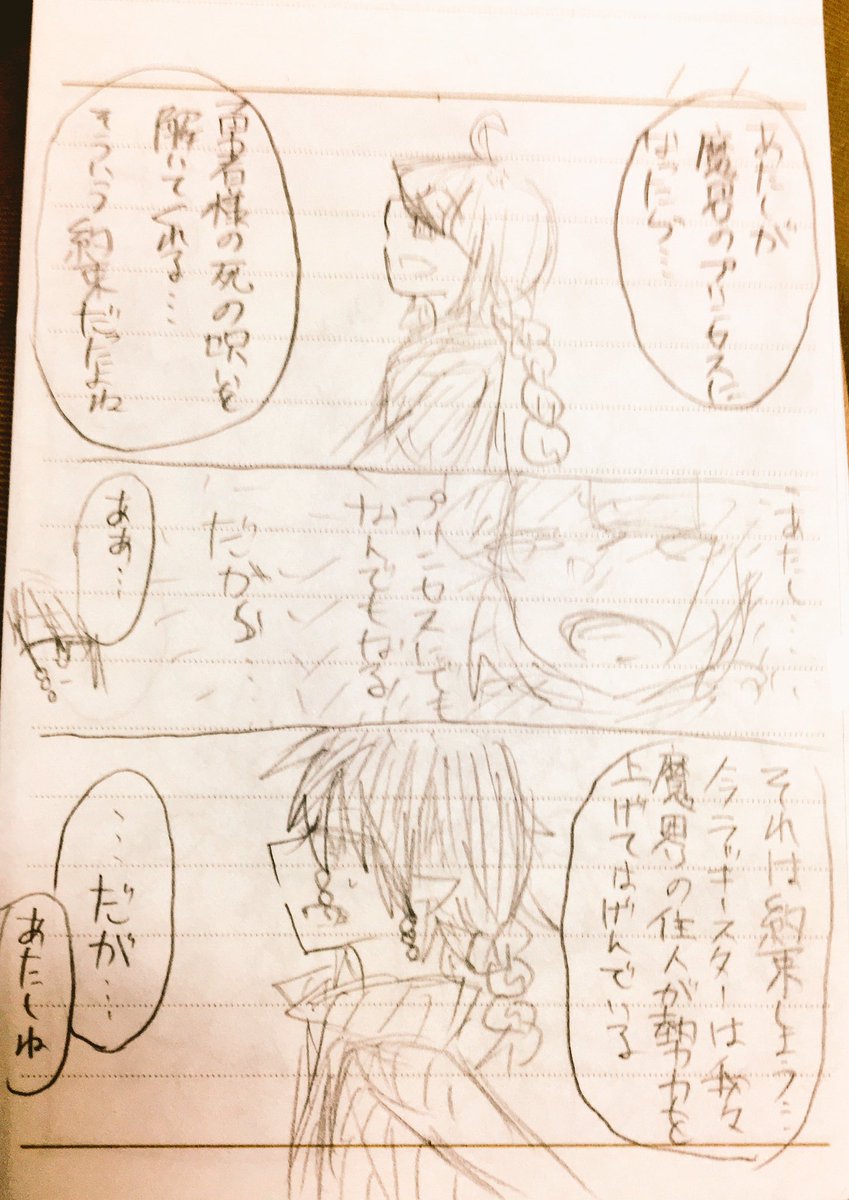 あたしが
魔界のプリンセスに
なったら…
勇者様の死の呪いを
解いてくれる…
そういう約束だったよね
あたし……
プリンセスにでも
なんでもなる
だから…
ああ…
それは約束しよう…
今ラッキースターは我々
魔界の住人が勢力を
上げてはげんでいる
……だが…
あたしね